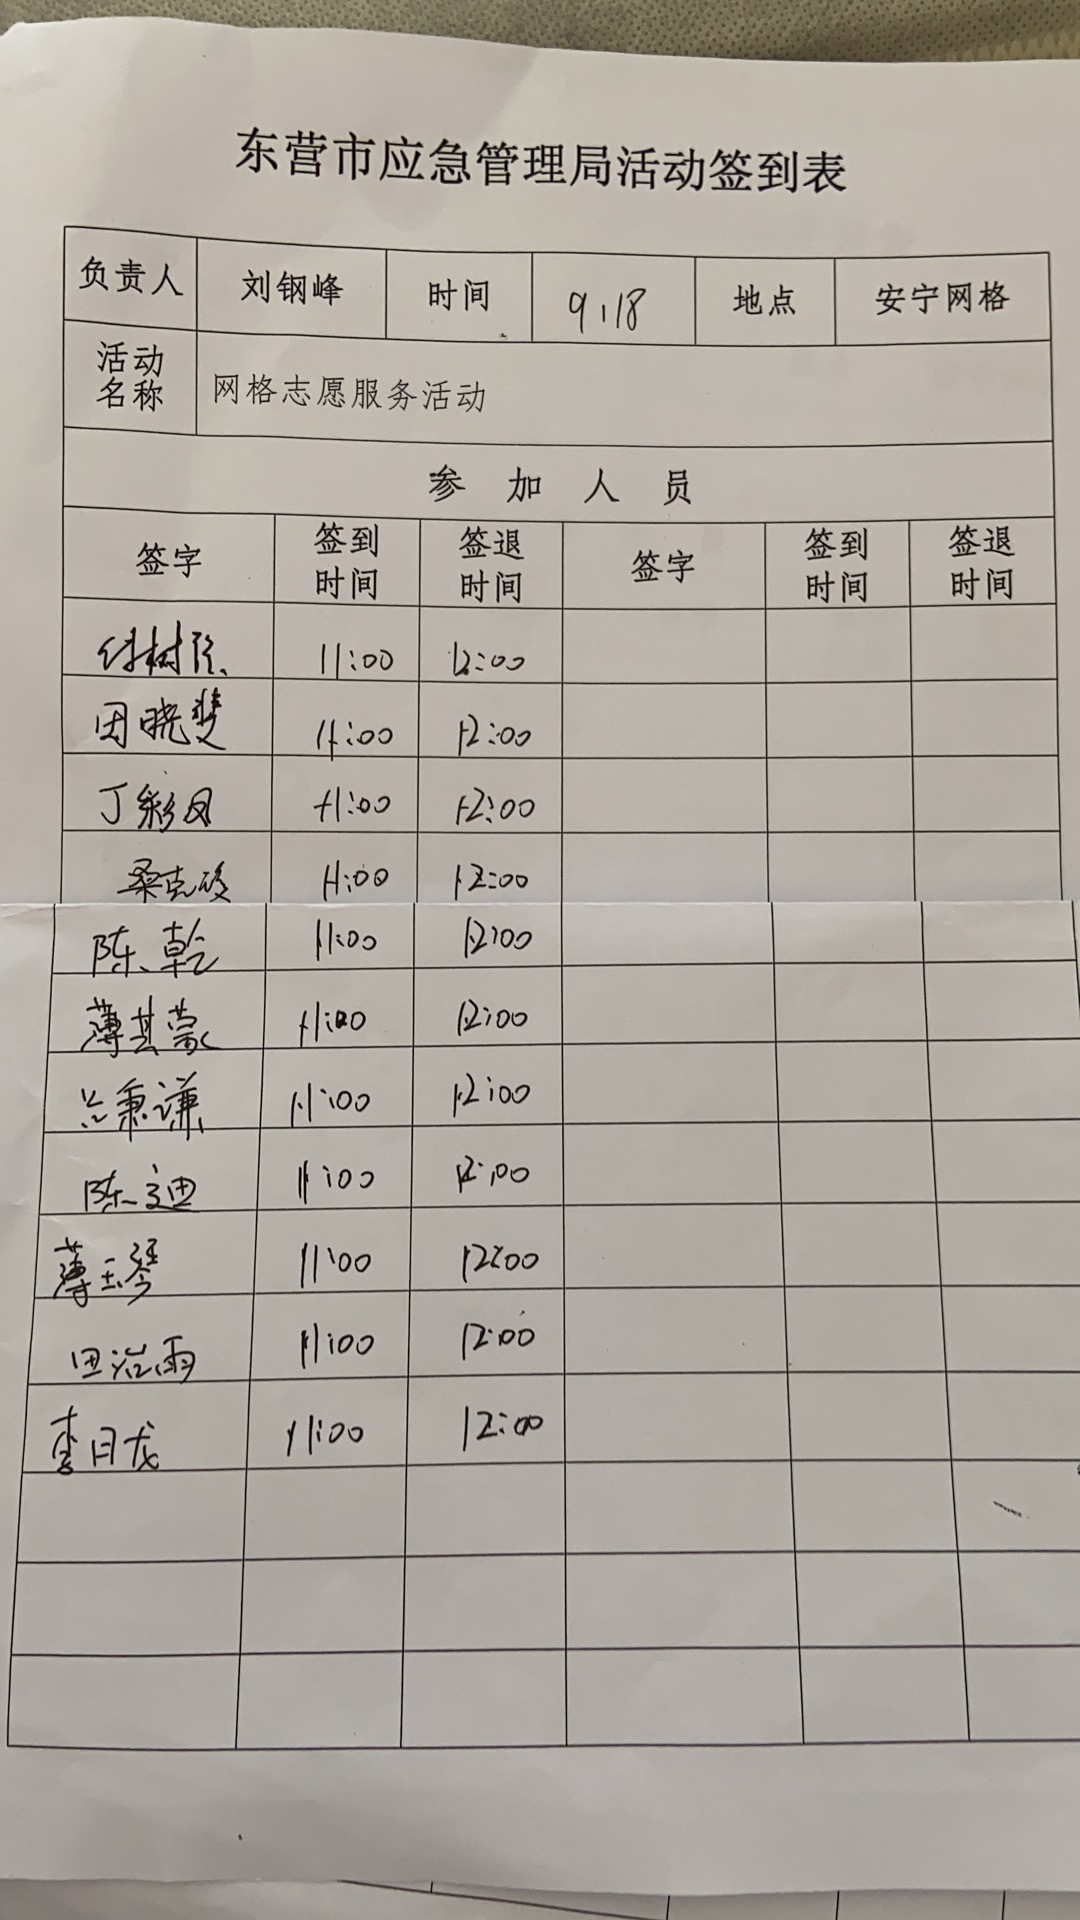 东营市应急管理局活动签到表
负责人 刘钢峰 时间 9.18 地点 安宁网格
活动名称 网格志愿服务活动
参加人员
签字 签到时间 签退时间 签字 签到时间 签退时间
11:00 12:00
田晓斐 11:00 12:00
丁彩凤 11:00 12:00
桑克俊 11:00 12:00
陈乾 11:00 12:00
薄其蒙 11:00 12:00
秉谦 11:00 12:00
陈迪 11:00 12:00
薄玉琴 11:00 12:00
田浴雨 11:00 12:00
李日龙 11:00 12:00